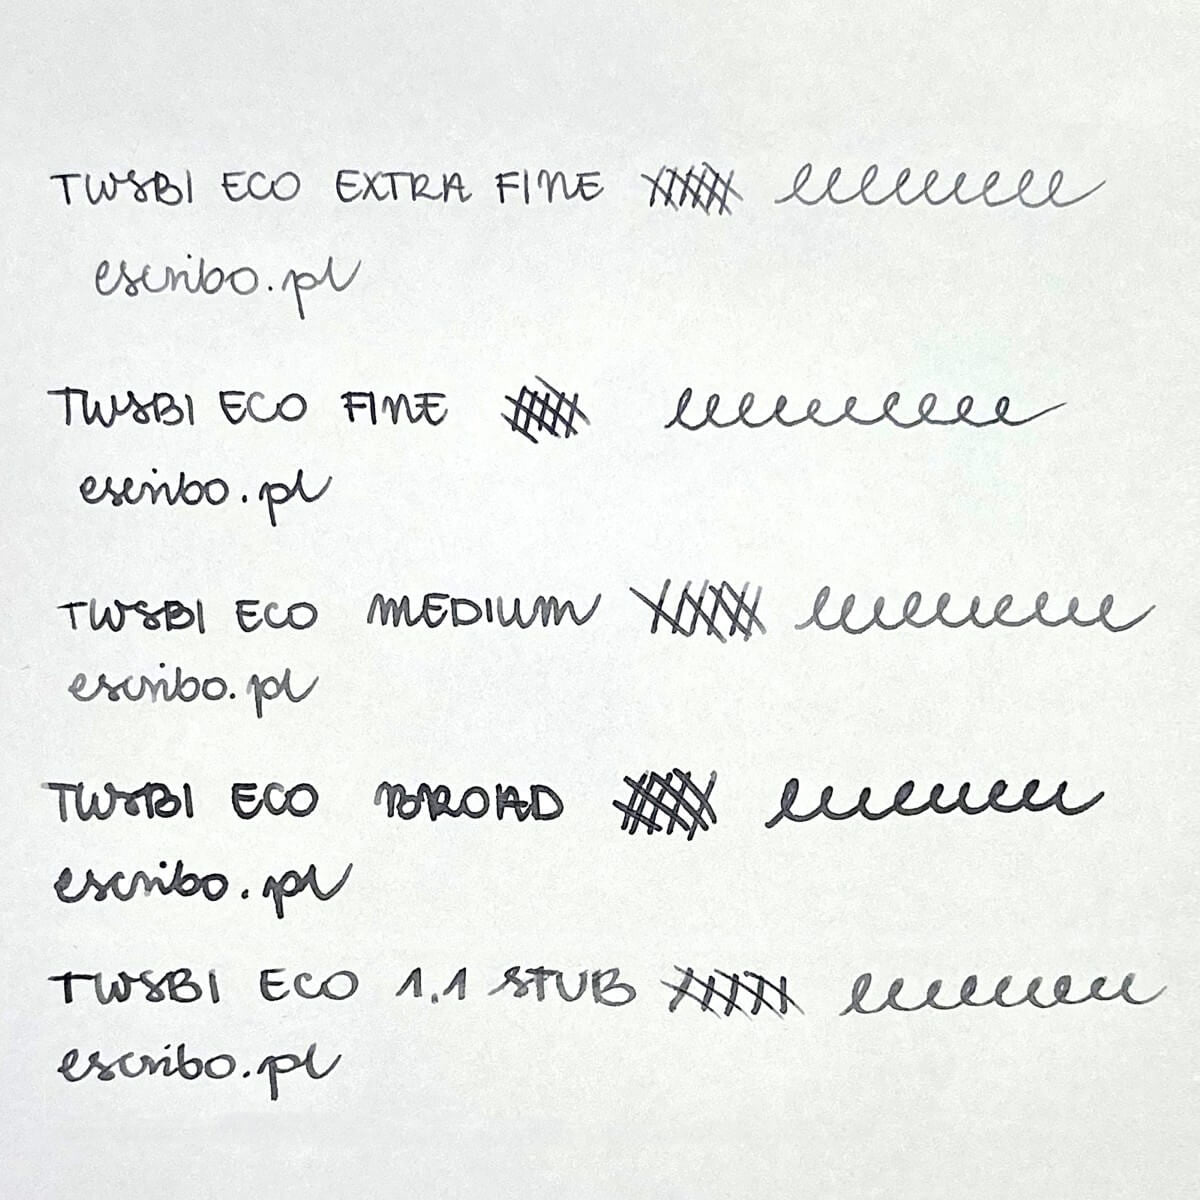 TWSBI ECO EXTRA FINE
escribo.pl
TWSBI ECO FINE
escribo.pl
TWSBI ECO MEDIUM
escribo.pl
TWSBI ECO BROAD
escribo.pl
TWSBI ECO 1.1 STUB
escribo.pl